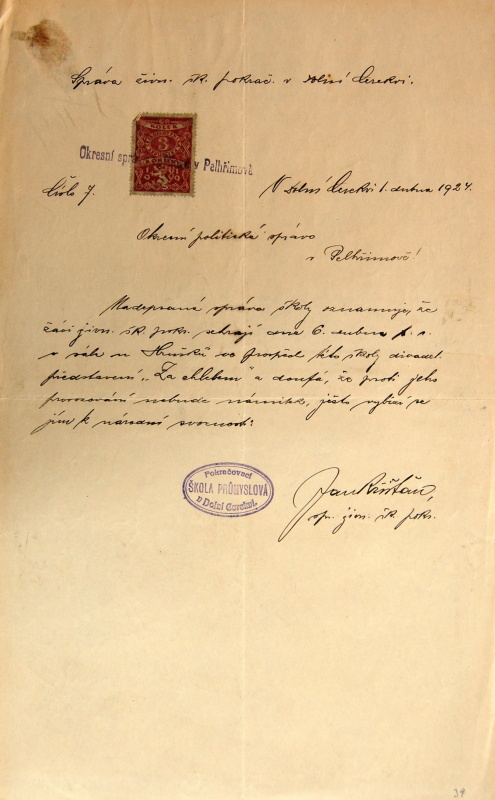 Správa živn. šk. pokrač. v Dolní Cerekvi.
KOLEK
3
Okresní správa v Pelhřimově
Číslo 7.
V Dolní Cerekvi 1. dubna 1924.
Okresní politická správo
v Pelhřimově!
Nadepsaná správa školy oznamuje, že
žáci živn. šk. pokr. sehrají dne 6. dubna t. r.
v sále u Hrušků ve prospěch této školy divadel.
představení „Za chlebem" a doufá, že proti jeho
provozování nebude námitek, ježto vybízí se
jím k národní svornosti.
Pokračovací
ŠKOLA PRŮMYSLOVÁ
v Dolní Cerekvi.
Jan
spr. živn. šk. pokr.
39